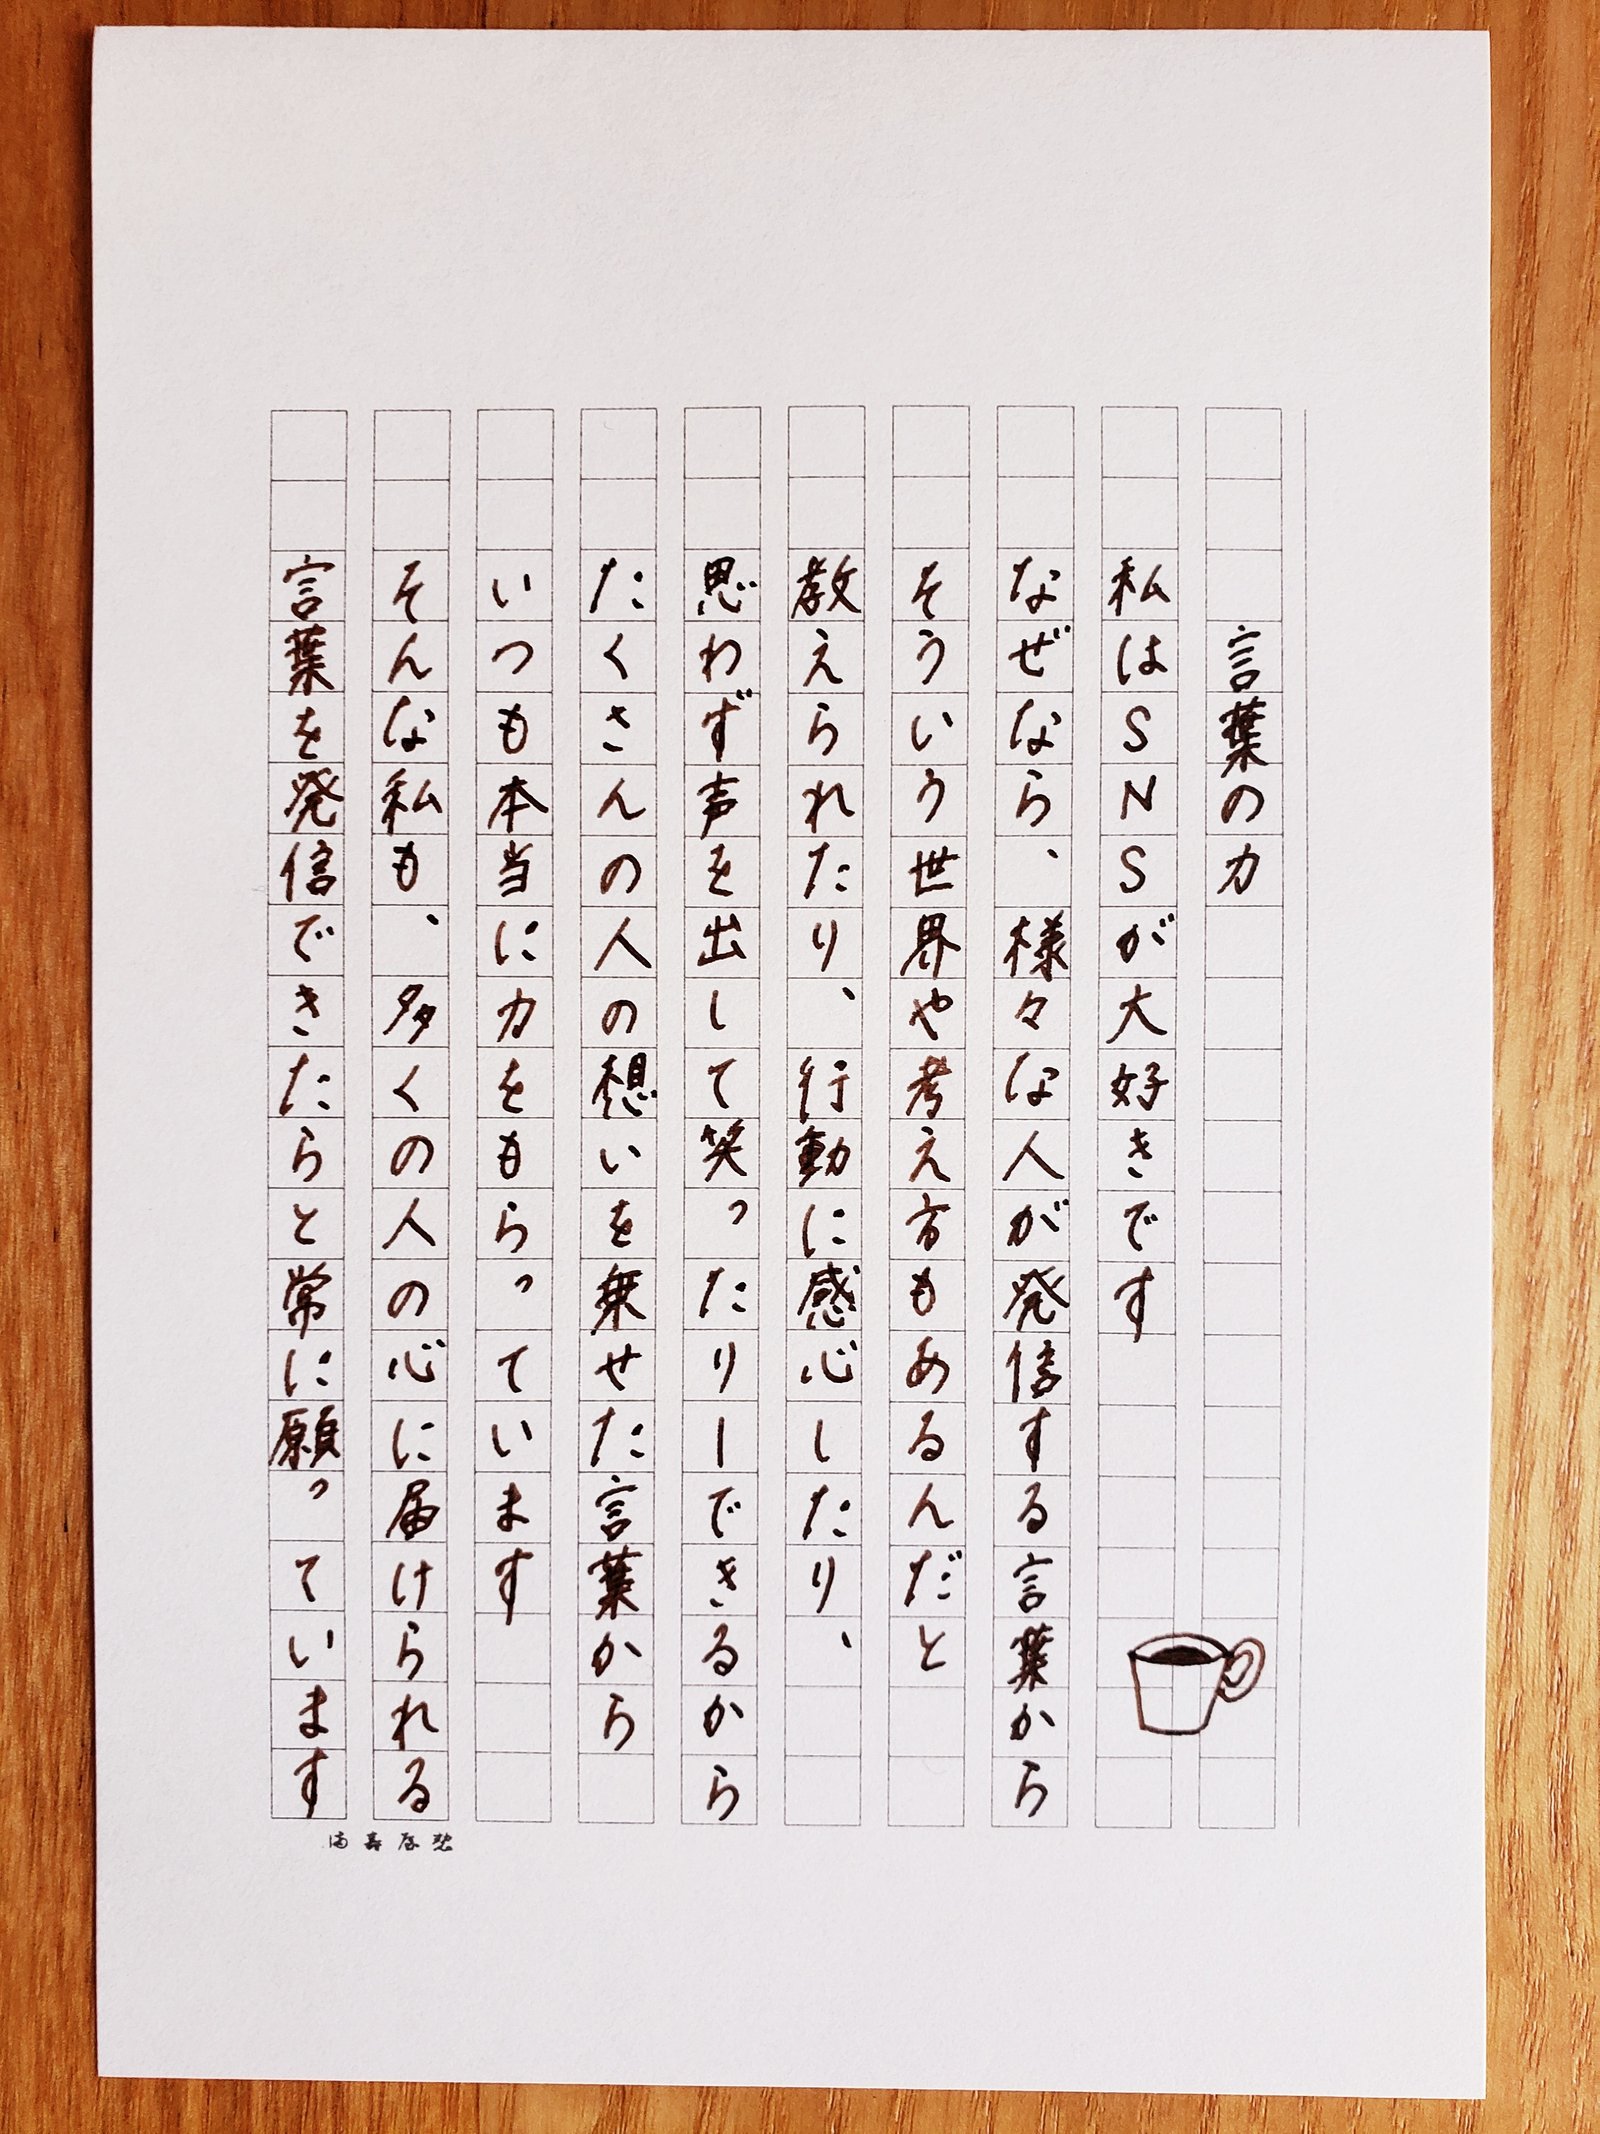 言葉の力
私はSNSが大好きです
なぜなら、様々な人が発信する言葉から
そういう世界や考え方もあるんだと
教えられたり、行動に感心したり、
思わず声を出して笑ったりーできるから
たくさんの人の想いを乗せた言葉から
いつも本当に力をもらっています
そんな私も、多くの人の心に届けられる
言葉を発信できたらと常に願っています